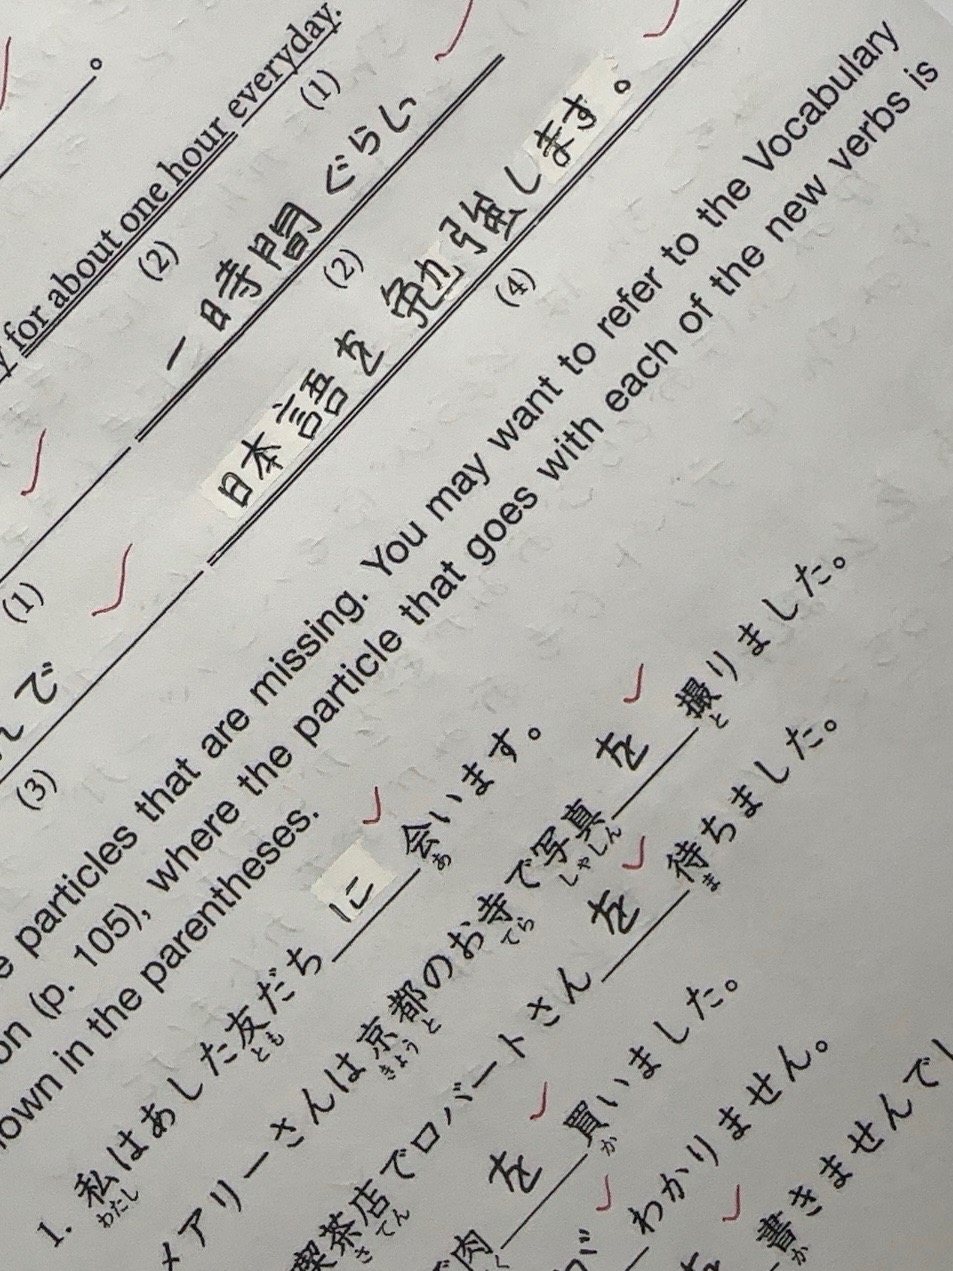 。
for about one hour everyday.
(2) (1)
一時間 ぐらい
(1) (2)
で 日本語を 勉強します。
(3) (4)
particles that are missing. You may want to refer to the Vocabulary
(p. 105), where the particle that goes with each of the new verbs is
in the parentheses.
1. 私はあした友だち に 会います。
わたし とも あ
メアリーさんは京都のお寺で写真 を 撮りました。
きょうと てら しゃしん と
喫茶店でロバートさん を 待ちました。
さてん ま
肉 を 買いました。
か
が わかりません。
を 書きませんでし
か